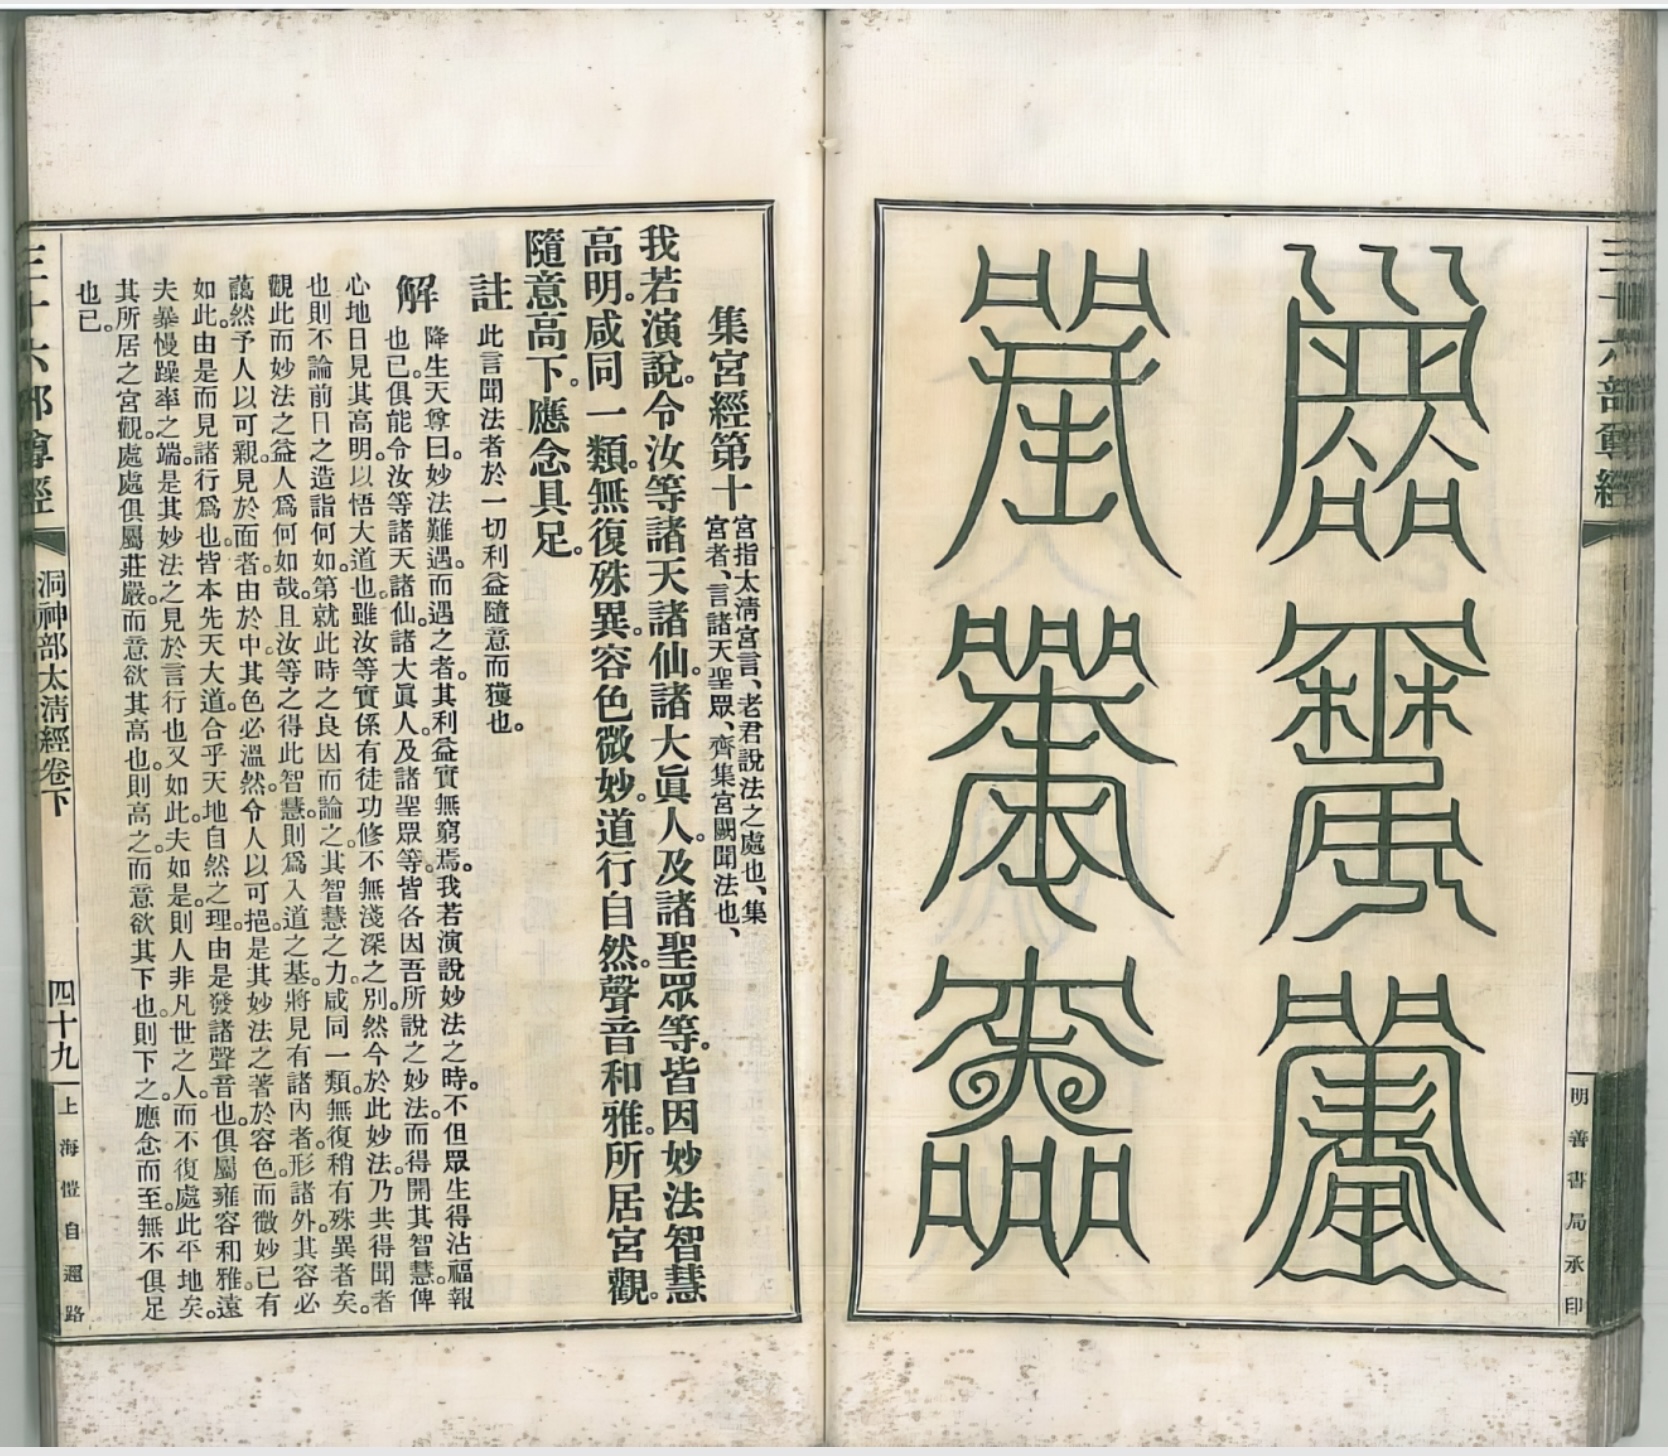 三十六部尊經
明善書局承印
集宮經第十
宮指太淸宮言、老君說法之處也、集
宮者、言諸天聖眾、齊集宮闕聞法也、
我若演說。令汝等諸天諸仙。諸大眞人。及諸聖眾等。皆因妙法智慧
高明。咸同一類。無復殊異。容色微妙。道行自然。聲音和雅。所居宮觀。
隨意高下。應念具足。
註 此言聞法者於一切利益隨意而獲也。
解 降生天尊曰。妙法難遇。而遇之者。其利益實無窮焉。我若演說妙法之時。不但眾生得沾福報
也已。俱能令汝等諸天諸仙。諸大眞人。及諸聖眾等。皆各因吾所說之妙法。而得開其智慧。俾
心地日見其高明。以悟大道也。雖汝等實係有徒功修不無淺深之別。然今於此妙法。乃共得聞者
也則不論前日之造詣何如。第就此時之良因而論之。其智慧之力。咸同一類。無復稍有殊異者矣。
觀此而妙法之益人爲何如哉。且汝等之得此智慧。則爲入道之基。將見有諸內者。形諸外。其容必
藹然予人以可親。見於面者。由於中。其色必溫然。令人以可挹。是其妙法之著於容色。而微妙已有
如此。由是而見諸行爲也。皆本先天大道。合乎天地自然之理。由是發諸聲音也。俱屬雍容和雅。遠
夫暴慢躁率之端。是其妙法之見於言行也又如此。夫如是。則人非凡世之人。而不復處此平地矣。
其所居之宮觀。處處俱屬莊嚴。而意欲其高也。則高之。而意欲其下也。則下之。應念而至。無不俱足
也已。
三十六部尊經 洞神部太淸經卷下 四十九 上海愷自邇路